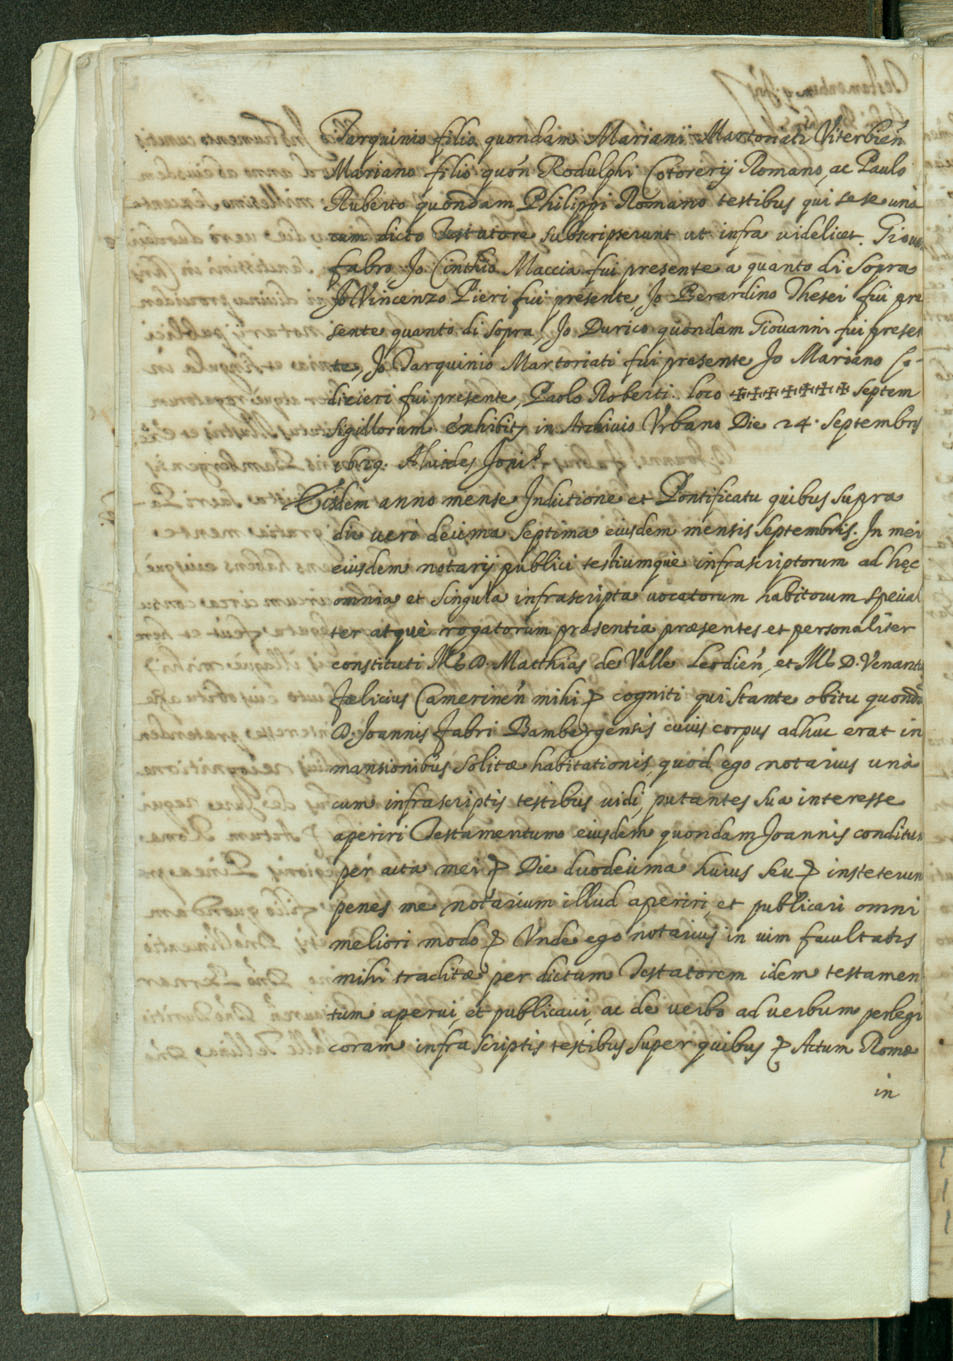 Tarquinio filio quondam Mariani Martoriati Viterbień
Mariano filio quoń Rodulphi Cotorerij Romano, ac Paulo
Ruberto quondam Philippi Romano testibus qui sese unà
cum dicto Testatore subscripserunt ut infra videlicet. Giouã
fabro Jo: Cinthio Maccia fui presente a quanto di sopra
Jo Vincenzo Pieri fui presente Jo Berardino Thesei fui pre
sente quanto di sopra, Jo Durico quondam Giovanni fui presen
te, Jo Tarquinio Martoriati fui presente Jo Mariano Co-
dicieri fui presente, Paolo Roberti. loco ✠✠✠✠✠✠✠ septem
sigillorum exhibit; in Archivio Vrbano Die 24. Septembris
1629.
Eisdem anno mense Indictione et Pontificatu quibus supra
die uerò decima septima eiusdem mensis septembris. In mei
eiusdem notarij publici testiumquè infrascriptorum ad hęc
omnia et singula infrascripta uocatorum habitorum speial
ter atquè rogatorum prasentia præsentes et personaliter
constituti M. D. Matthias de Valle Leodień, et M. D. Venant
Fælicius Camerineń mihi ꝑ cogniti qui stante obitu quond
D. Joannis Fabri Bambergensis cuius corpus adhuc erat in
mansionibus solitæ habitationis, quod ego notarius unà
cum infrascriptis testibus uidi, putantes sua interesse
aperiri Testamentum eiusdem quondam Joannis conditum
per acta mei ꝑ Die duodecima huius seu ꝑ insteterun
penes me notarium illud aperiri, et publicari omni
meliori modo ꝑ Vnde ego notarius in uim facultatis
mihi traditæ per dictum Testatorem idem testamen
tum aperui, et publicaui, ac de uerbo ad uerbum perlegi
coram infrascriptis testibus super quibus ꝑ Actum Romæ
in